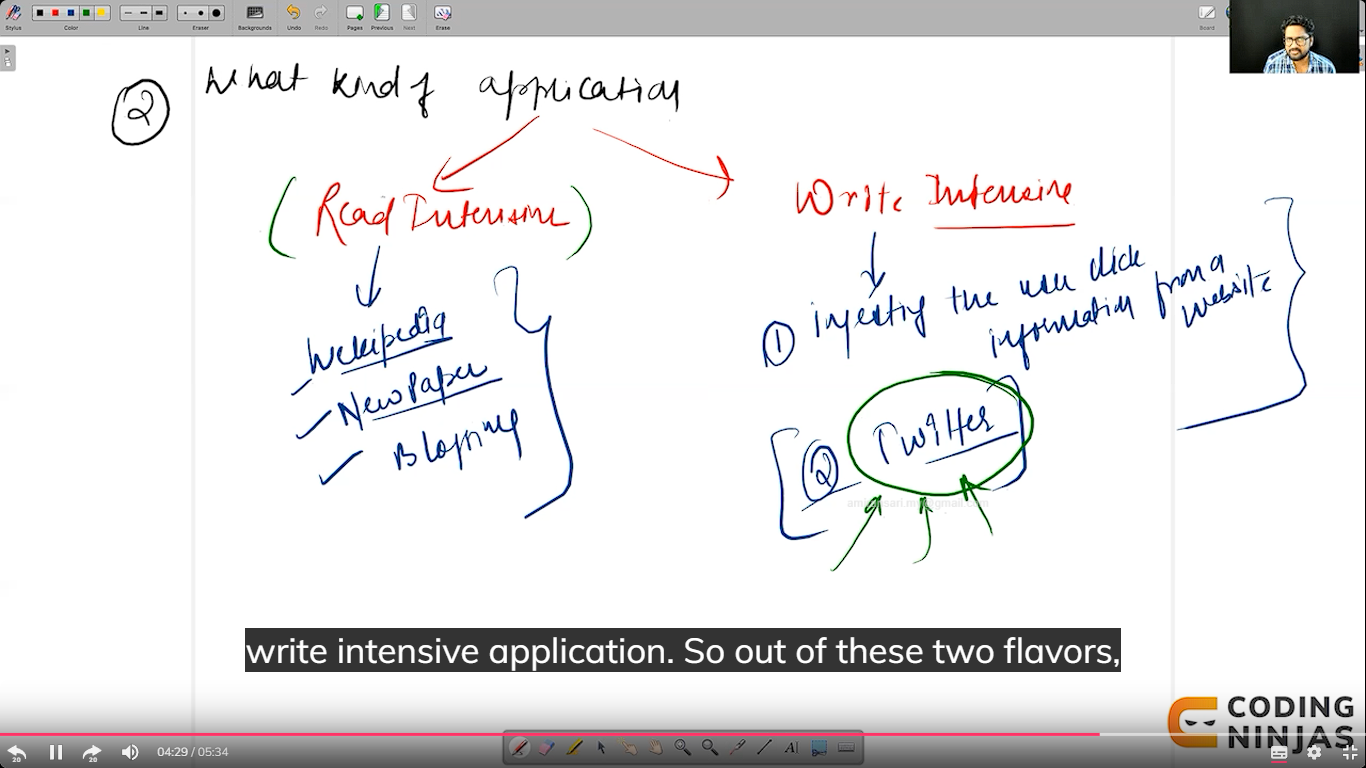 Stylus Color Line Eraser Backgrounds Undo Redo Pages Previous Next Erase Board
② What kind of application
(Read Intensive)
Write Intensive
Wikipedia
NewsPaper
Blogging
① ingesting the user click
information from a
website
② Twitter
write intensive application. So out of these two flavors,
CODING
NINJAS
20 20 04:29 / 05:34